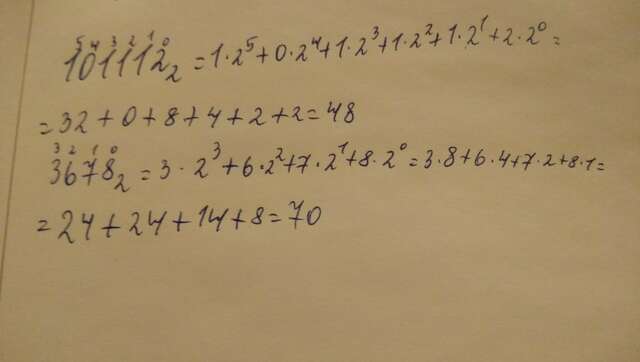 5 4 3 2 1 0
101112₂ = 1·2⁵+0·2⁴+1·2³+1·2²+1·2¹+2·2⁰=
= 32+0+8+4+2+2=48
3 2 1 0
3678₂ = 3·2³+6·2²+7·2¹+8·2⁰=3·8+6·4+7·2+8·1=
= 24+24+14+8=70